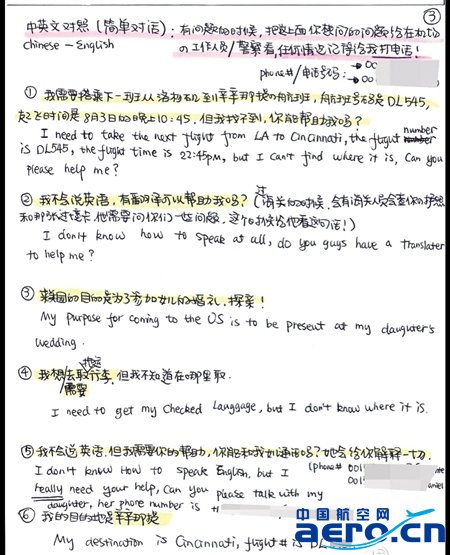 ③
中英文对照(简单对话):有问题的时候,把上面你想问的问题给在机场
Chinese - English 的工作人员/警察看,任何情况记得给我打电话!
phone#/电话号码: → 00
→ 00
① 我需要搭乘下一班从洛杉矶到辛辛那提的航班,航班号码是DL545,
起飞时间是8月3日的晚上10:45,但我找不到,你能帮助我吗?
I need to take the next flight from LA to Cincinnati, the flight number
is DL545, the flight time is 22:45pm, but I can't find where it is, Can you
please help me?
② 我不会说英语,有翻译可以帮助我吗?(过海关的时候,会有海关人员会查你的护照
和那张过境卡,他需要问你们一些问题,这个时候给他看这句话!)
I don't know how to speak at all, do you guys have a translater
to help me?
③ 来美国的目的是为了参加女儿的婚礼,探亲!
My purpose for coming to the US is to be present at my daughter's
wedding.
④ 我想/需要去取托运行李,但我不知道在哪里取.
I need to get my checked Language, but I don't know where it is.
⑤ 我不会说英语,但我需要你的帮助,你能和我女儿通话吗?她会给你解释一切.
I don't know How to speak English, but I (phone# 001
really need your help, Can you please talk with my 001
daughter, her phone number is
⑥ 我的目的地是辛辛那提
My destination is Cincinnati, flight# is DL
中国航空网
aero.cn